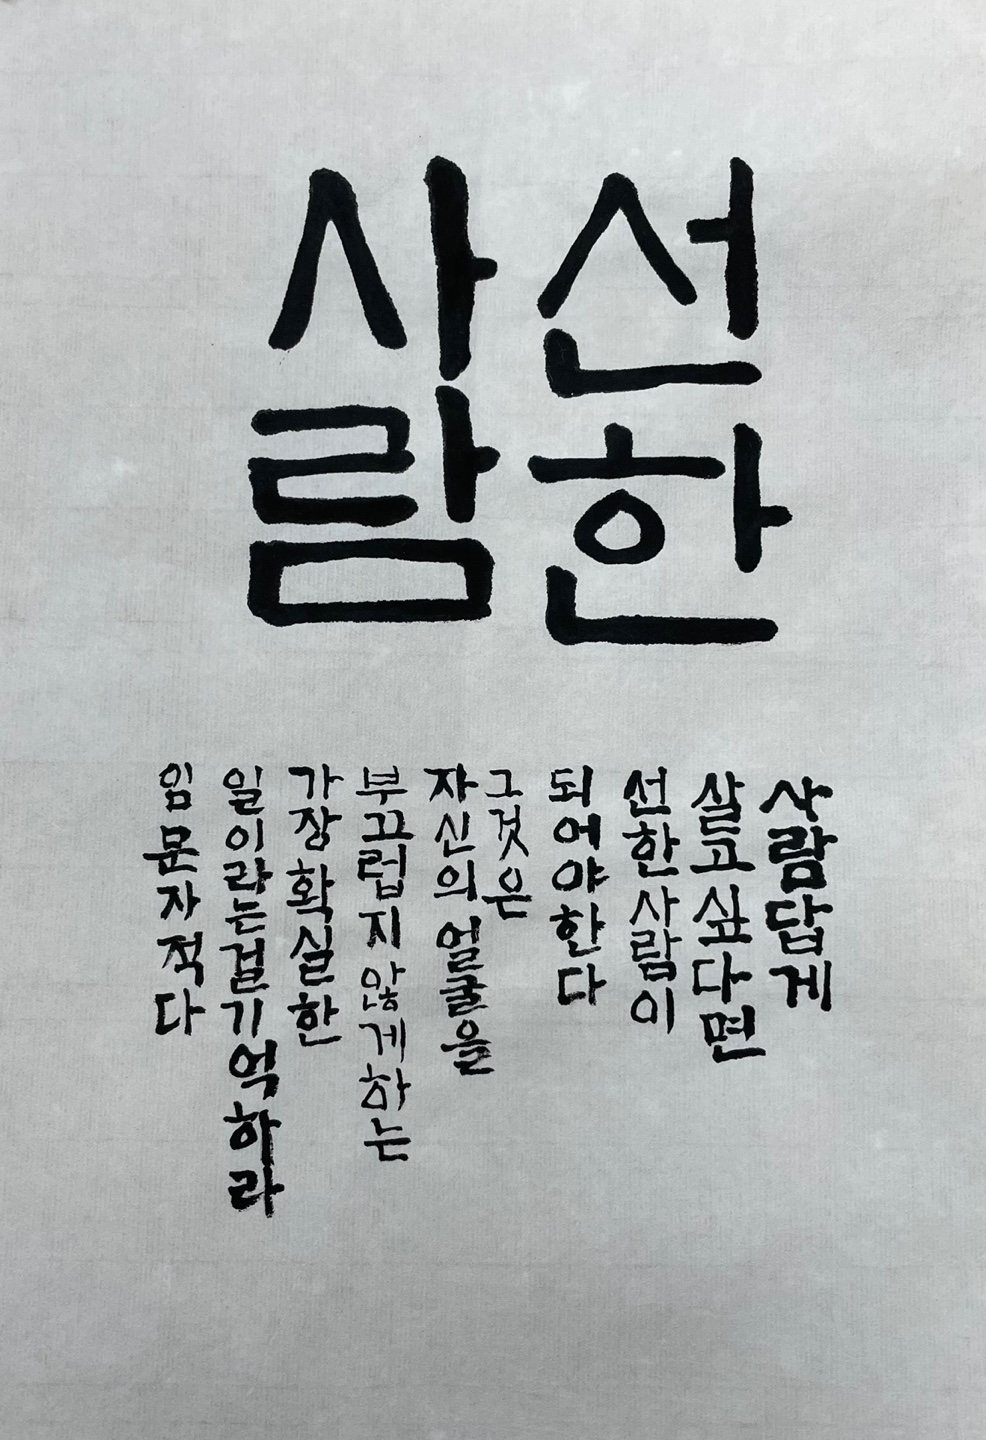 선한
사람
사람답게
살고싶다면
선한사람이
되어야한다
그것은
자신의얼굴을
부끄럽지않게하는
가장확실한
일이라는걸기억하라
임문자적다